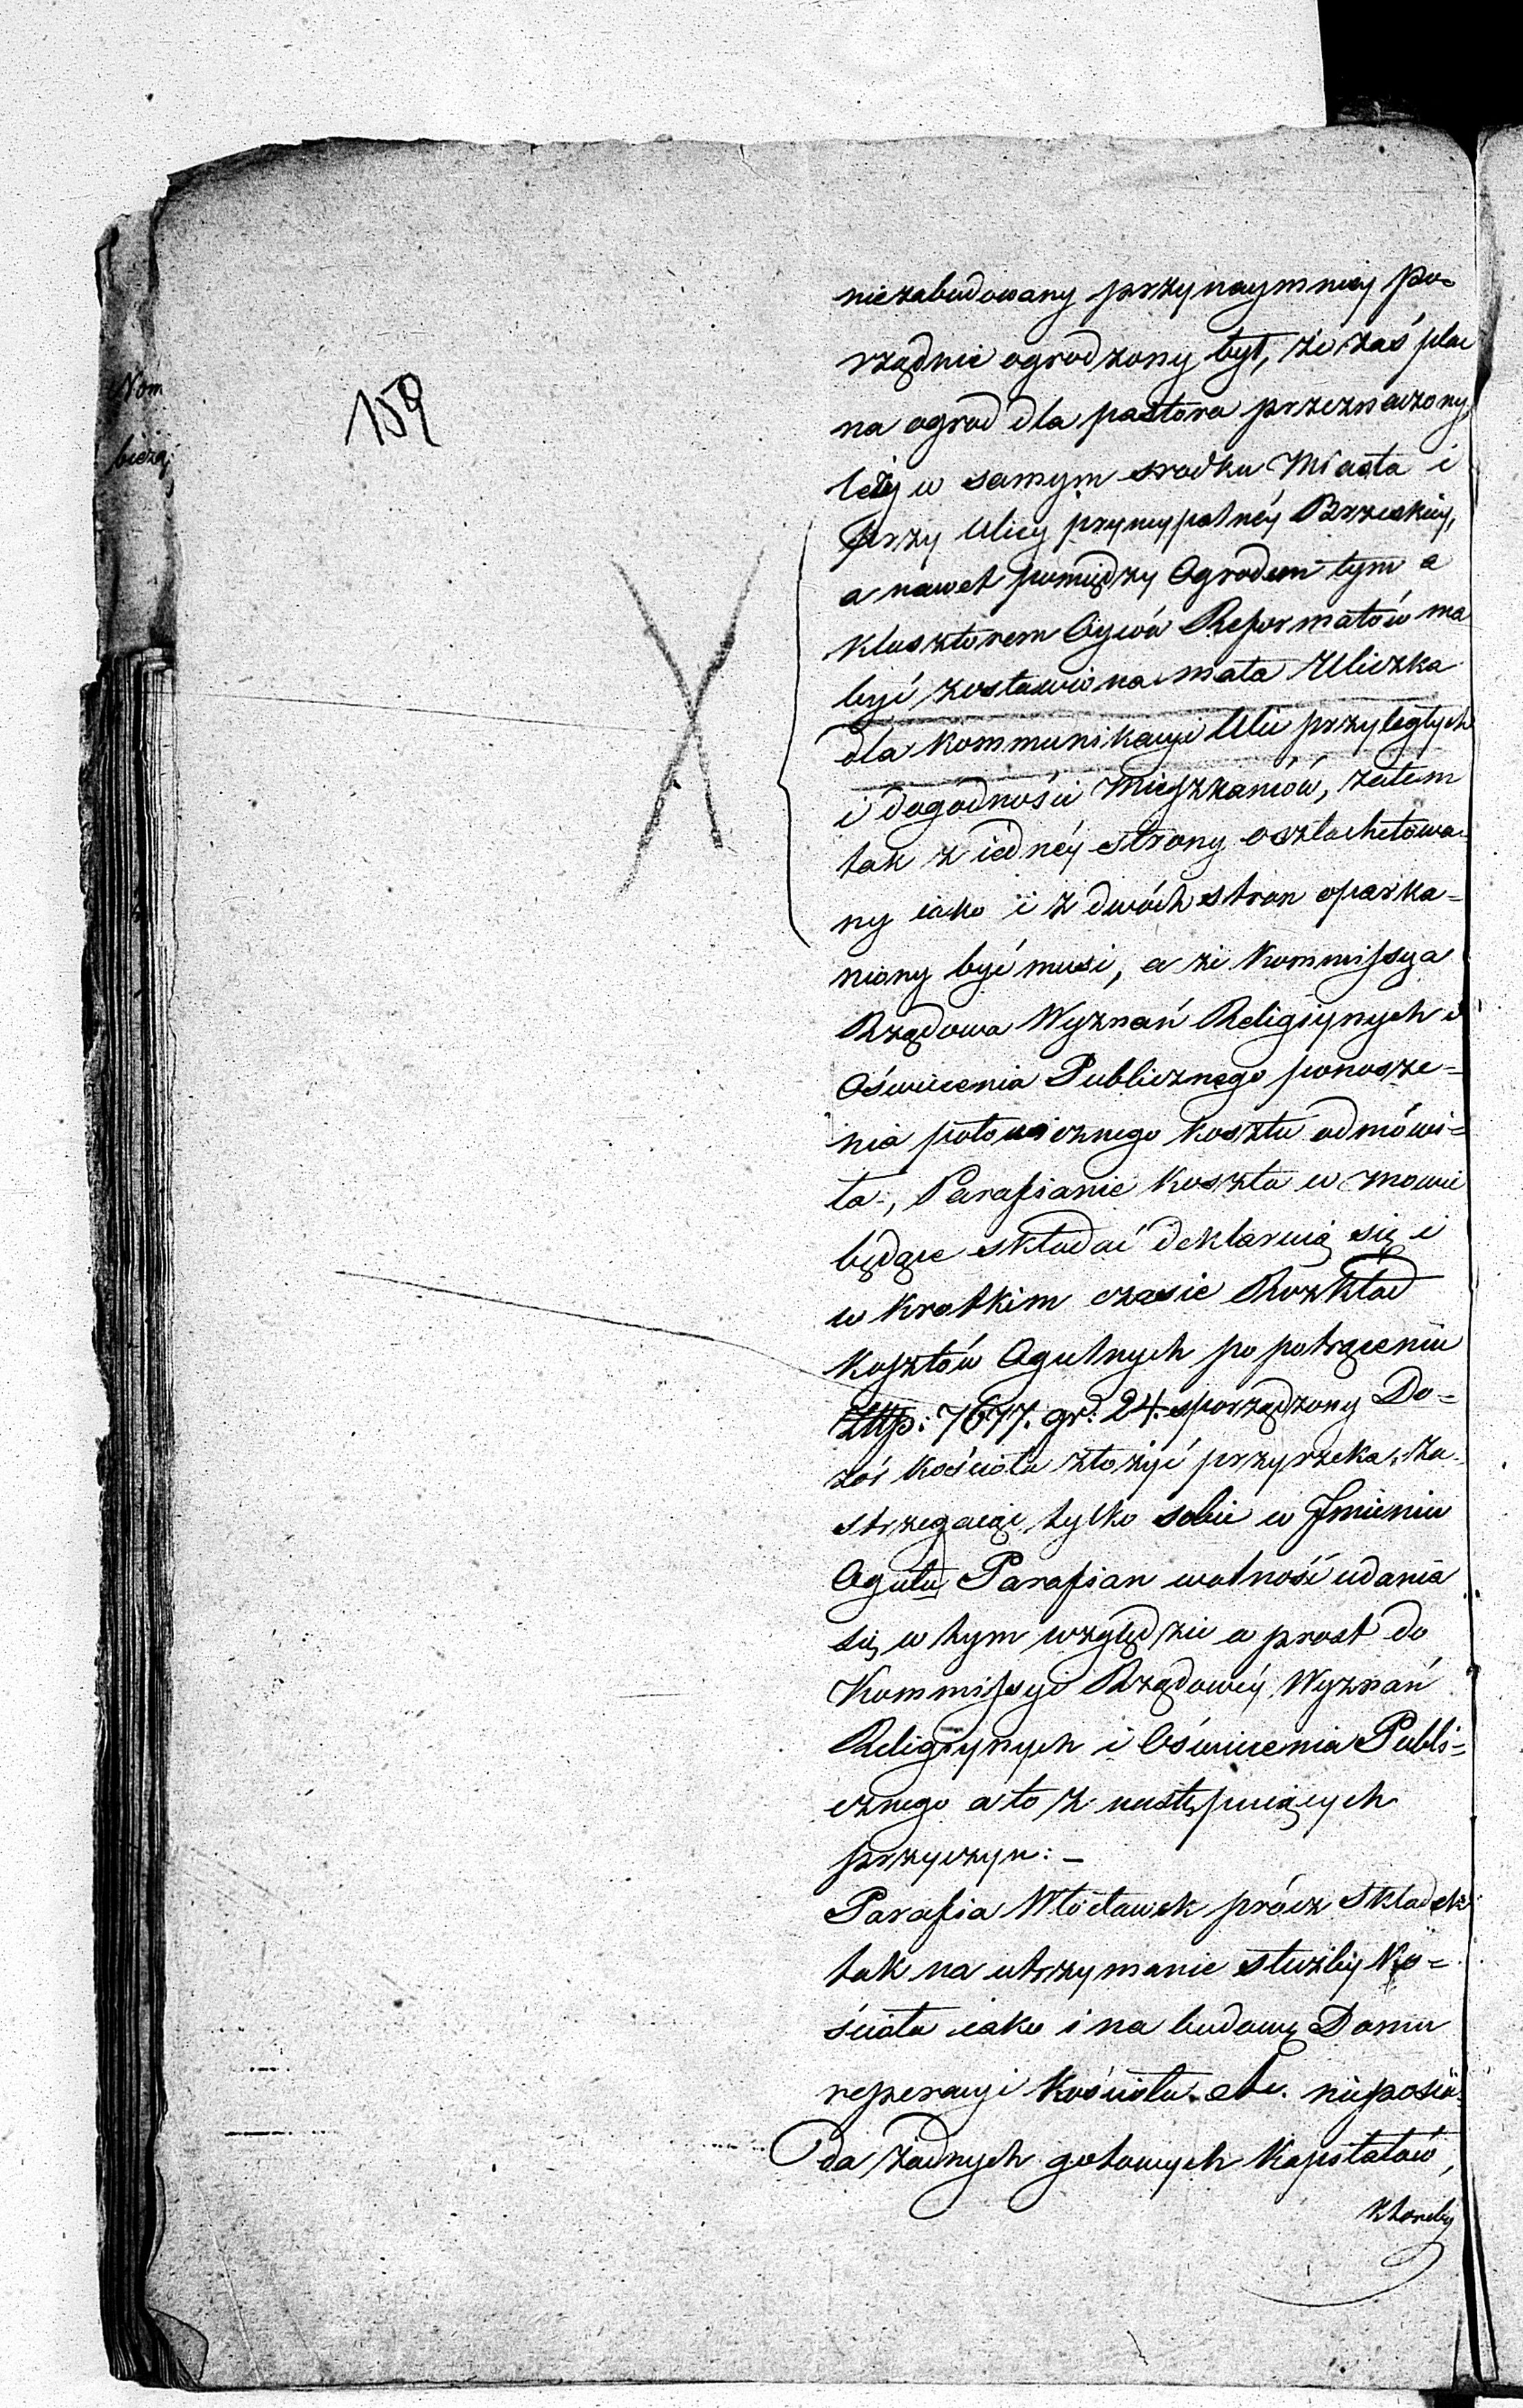 159
Nom
bieżą:
niezabudowany przynaymniéy po-
rządnie ogrodzony był, że zaś plac
na ogrod dla pastora przeznaczony
leży w samym srodku Miasta i
przy Ulicy pryncypalnéy Brzeskiéy,
a nawet pomiędzy Ogrodem tym a
klasztorem Oyców Reformatów ma
być zostawiona mała Uliczka
dla kommunikacyi Ulic przyległych
i dogodności Mieszkańców, zatem
tak z iednéy strony osztachetowa-
ny iako i z dwóch stron oparka=
niony być musi, a że Kommissya
Rządowa Wyznań Religiynych i
Oświecenia Publicznego ponosze=
nia połowicznego kosztu odmówi=
ła, Parafianie koszta w mowie
będące składać deklaruią się i
w krotkim czasie Rozkład
kosztów Ogulnych po potrąceniu
Złtp: 7677. gr: 24. sporządzony Do=
zór Kościoła złożyć przyrzeka, za-
strzegaiąc tylko sobie w Jmieniu
Ogułu Parafian wolność udania
się w tym względzie w prost do
Kommissyi Rządowéy Wyznań
Religiynych i Oświecenia Publi=
cznego a to z następuiących
przyczyn: –
Parafia Włocławek prócz Składek
tak na utrzymanie służby Ko=
ścioła iako i na budowę Domu
reperacyi Kościoła etc. nieposia-
da żadnych gotowych kapitałów,
któreby